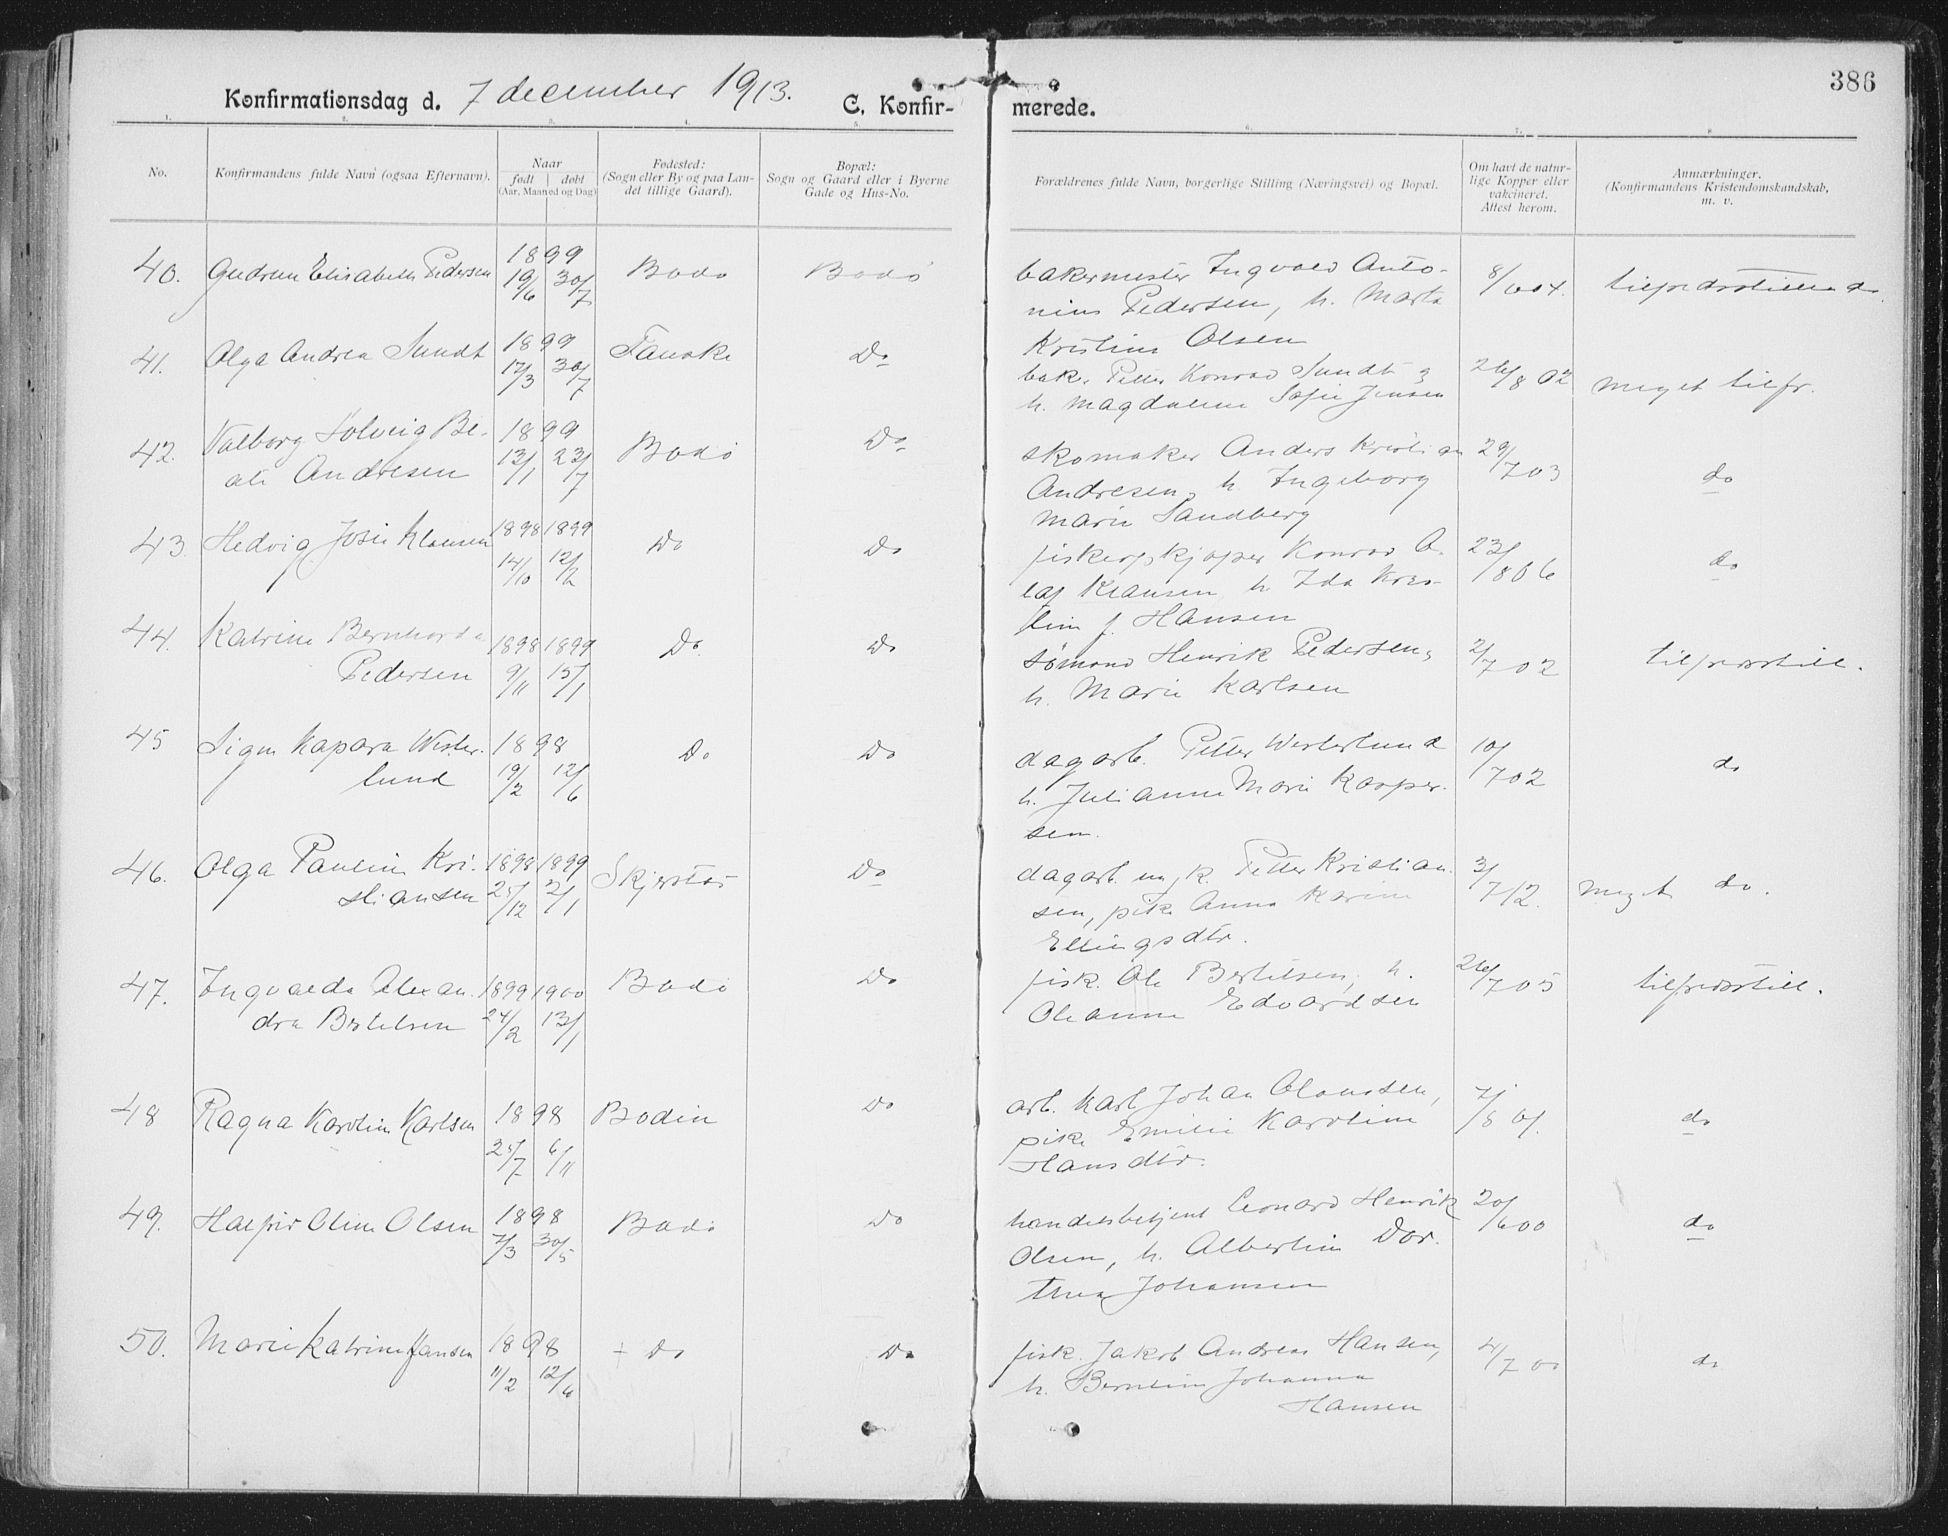 386
Konfirmationsdag d. 7 december 1913. C. Konfir- merede.
1. 2. 3. 4. 5. 6. 7. 8
No. Konfirmandens fulde Navn (ogsaa Efternavn). Naar født døbt (Aar, Maaned og Dag) Fødested: (Sogn eller By og paa Landet tillige Gaard). Bopæl: Sogn og Gaard eller i Byerne Gade og Hus-No. Forældrenes fulde Navn, borgerlige Stilling (Næringsvei) og Bopæl. Om havt de naturlige Kopper eller vakcineret. Attest herom. Anmærkninger. (Konfirmandens Kristendomskundskab, m. v.
40. Gudrun Elisabeth Pedersen 1899 19/6 30/7 Bodø Bodø bakermester Ingvald Anto- 8/6 04. tilfredsstillende
nius Pedersen, h. Marta
Kristine Olsen
41. Olga Andrea Sundt 1899 17/3 30/7 Fauske Do bak. Petter Konrad Sundt og 26/8 02 meget tilfr.
h. Magdalene Sofie Jensen
42. Valborg Solveig Be- 1899 13/1 23/7 Bodø Do skomaker Anders Kristian 29/7 03 do
ate Andresen Andresen, h. Ingeborg
Marie Sandberg
43. Hedvig Josie Klausen 1898 14/10 1899 12/2 Do Do fiskeopkjøper Konrad O- 23/8 06 do
laf Klausen h. Ida Kris-
tine f. Hansen
44. Katrine Bernharda 1898 9/11 1899 15/1 Do Do sømand Henrik Pedersen, 2/7 02 tilfredsstill.
Pedersen h. Marie Karlsen
45 Signe Kapara Wester- 1898 19/2 12/6 Do Do dagarb. Petter Westerlund 10/7 02 do
lund h. Julianne Marie Kasper-
sen.
46. Olga Pauline Kri- 1898 25/12 1899 2/1 Skjerstad Do dagarb. ungk. Petter Kristian- 3/7 12. meget do.
stiansen sen, pike Anna Karine
Ellingsdtr.
47. Ingvalda Alexan- 1899 24/2 1900 13/1 Bodø Do fisk. Ole Bertilsen, h. 26/7 05 tilfredsstill.
dra Bertelsen Oleanna Edvardsen
48 Ragna Karoline Karlsen 1898 25/7 6/11 Bodin Do arb. Karl Johan Olaussen, 7/8 01. do
pike Emilie Karoline
Hansdtr.
49. Halfrid Oline Olsen 1898 7/3 30/5 Bodø Do handelsbetjent Leonard Henrik 20/6 00 do
Olsen, h. Albertine Dor-
thea Johansen
50. Marie Katrine Hansen 1898 11/2 12/6 + do Do fisk. Jakob Andreas Hansen, 4/7 00 do
h. Berntine Johanna
Hansen